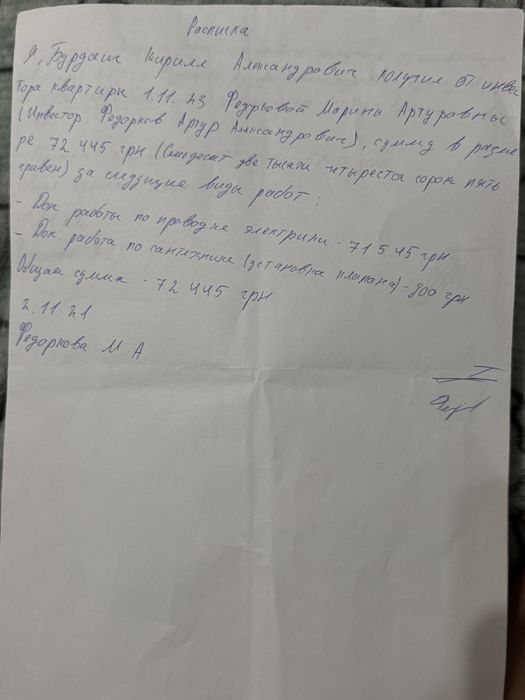 Расписка
Я, Бурдаш Кирилл Александрович получил от инвес
тора квартиры 1.11.23 Федорковой Марины Артуровны
(Инвестор Федорков Артур Александрович), сумму в разме
ре 72 445 грн (Семьдесят две тысячи четыреста сорок пять
гривен) за следующие виды работ:
- Доп. работы по проводке электрики - 71 545 грн
- Доп. работа по сантехнике (установка клапана) - 900 грн
Общая сумма - 72 445 грн
2.11.21
Федоркова М А.